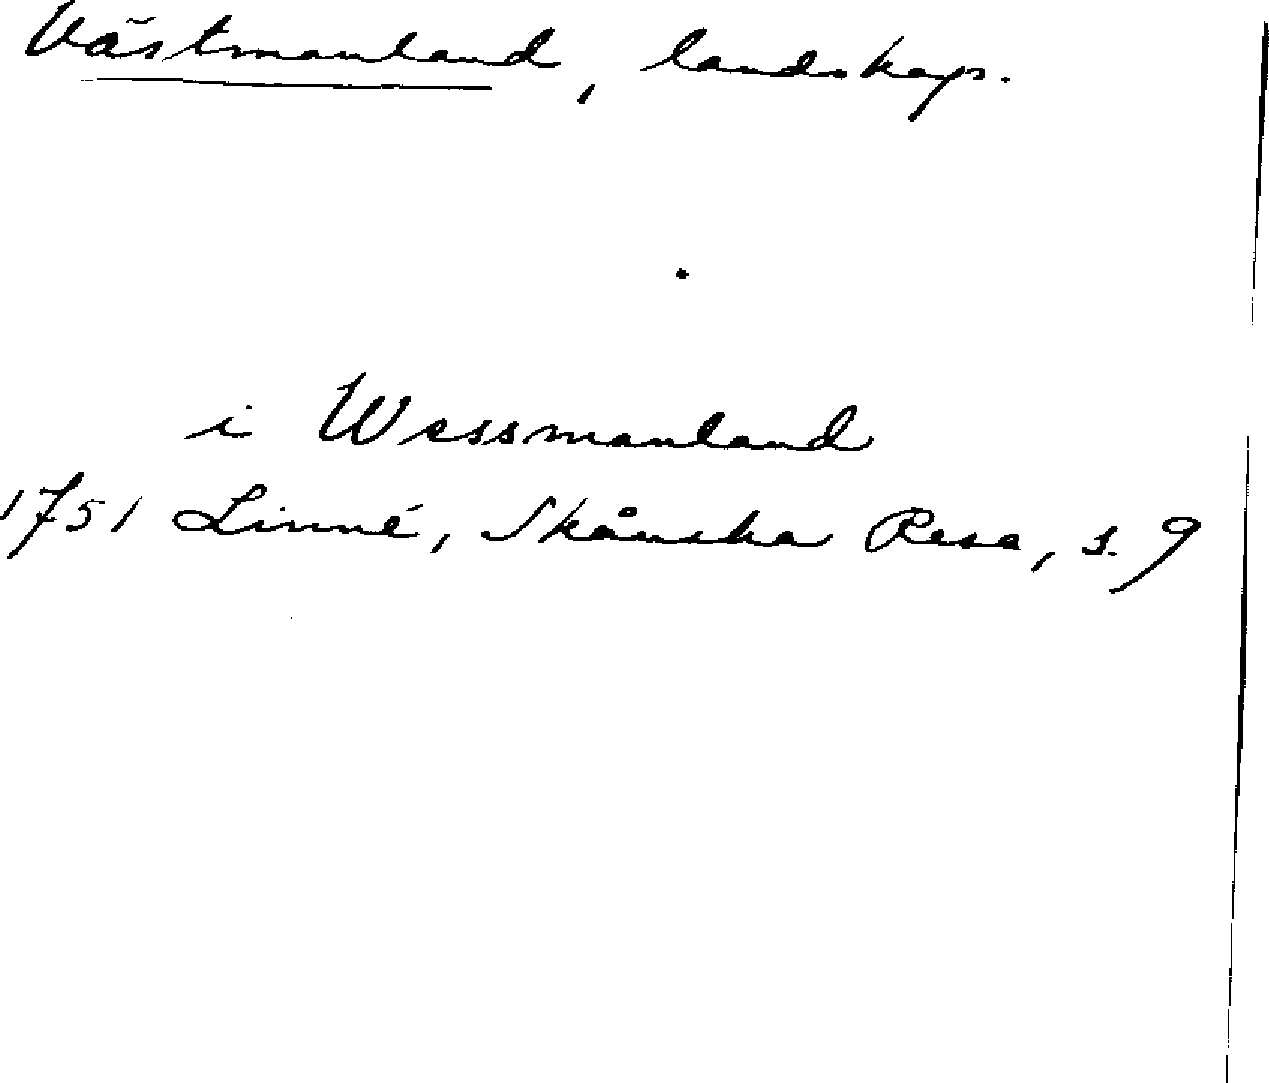 Västmanland, landskap.
i Wessmanland
1751 Linné, Skånska Resa, s. 9